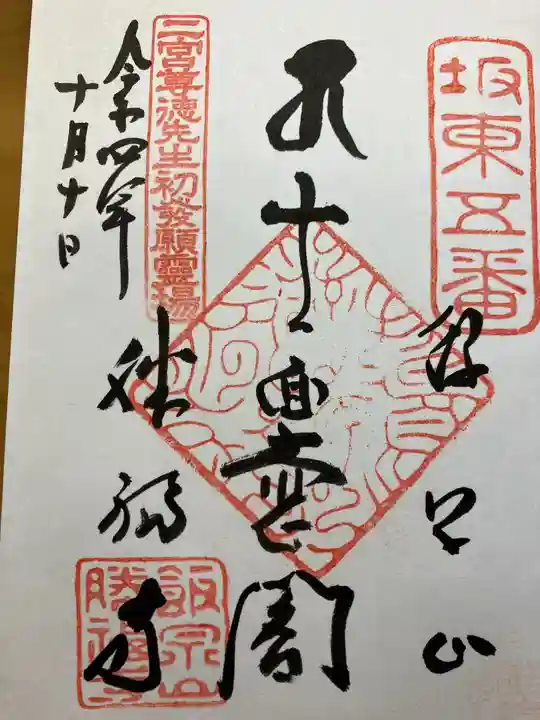 坂東五番
飯泉山
十一面
閣
二宮尊徳先生初發願靈場
勝福寺
令和四年
十月十日
飯泉山
勝福寺